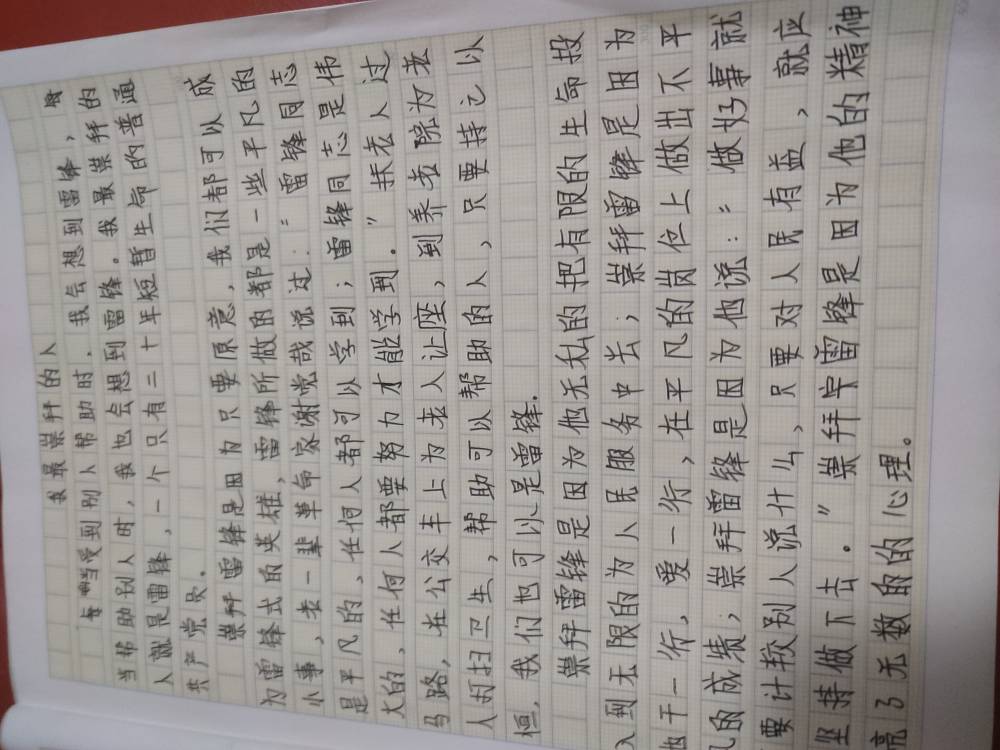 我最崇拜的人
每当受到别人帮助时，我会想到雷锋，每
当帮助别人时，我也会想到雷锋。我最崇拜的
人就是雷锋，一个只有二十年短暂生命的普通
共产党员。
崇拜雷锋是因为只要原意，我们都可以成
为雷锋式的英雄，雷锋所做的都是一些平凡的
小事，老一辈革命家谢觉哉说过：“雷锋同志
是平凡的，任何人都可以学到；雷锋同志是伟
大的，任何人都要努力才能学到。”扶老人过
马路，在公交车上为老人让座，到养老院为老
人们扫卫生，帮助可以帮助的人，只要持之以
恒，我们也可以是雷锋.
崇拜雷锋是因为他无私的把有限的生命投
入到无限的为人民服务中去；崇拜雷锋是因为
干一行，爱一行，在平凡的岗位上做出不平
凡的成绩；崇拜雷锋是因为他说：“做好事就
要计较别人说什么，只要对人民有益，就应
坚持做下去。”崇拜雷锋是因为他的精神
亮了无数的的心理。